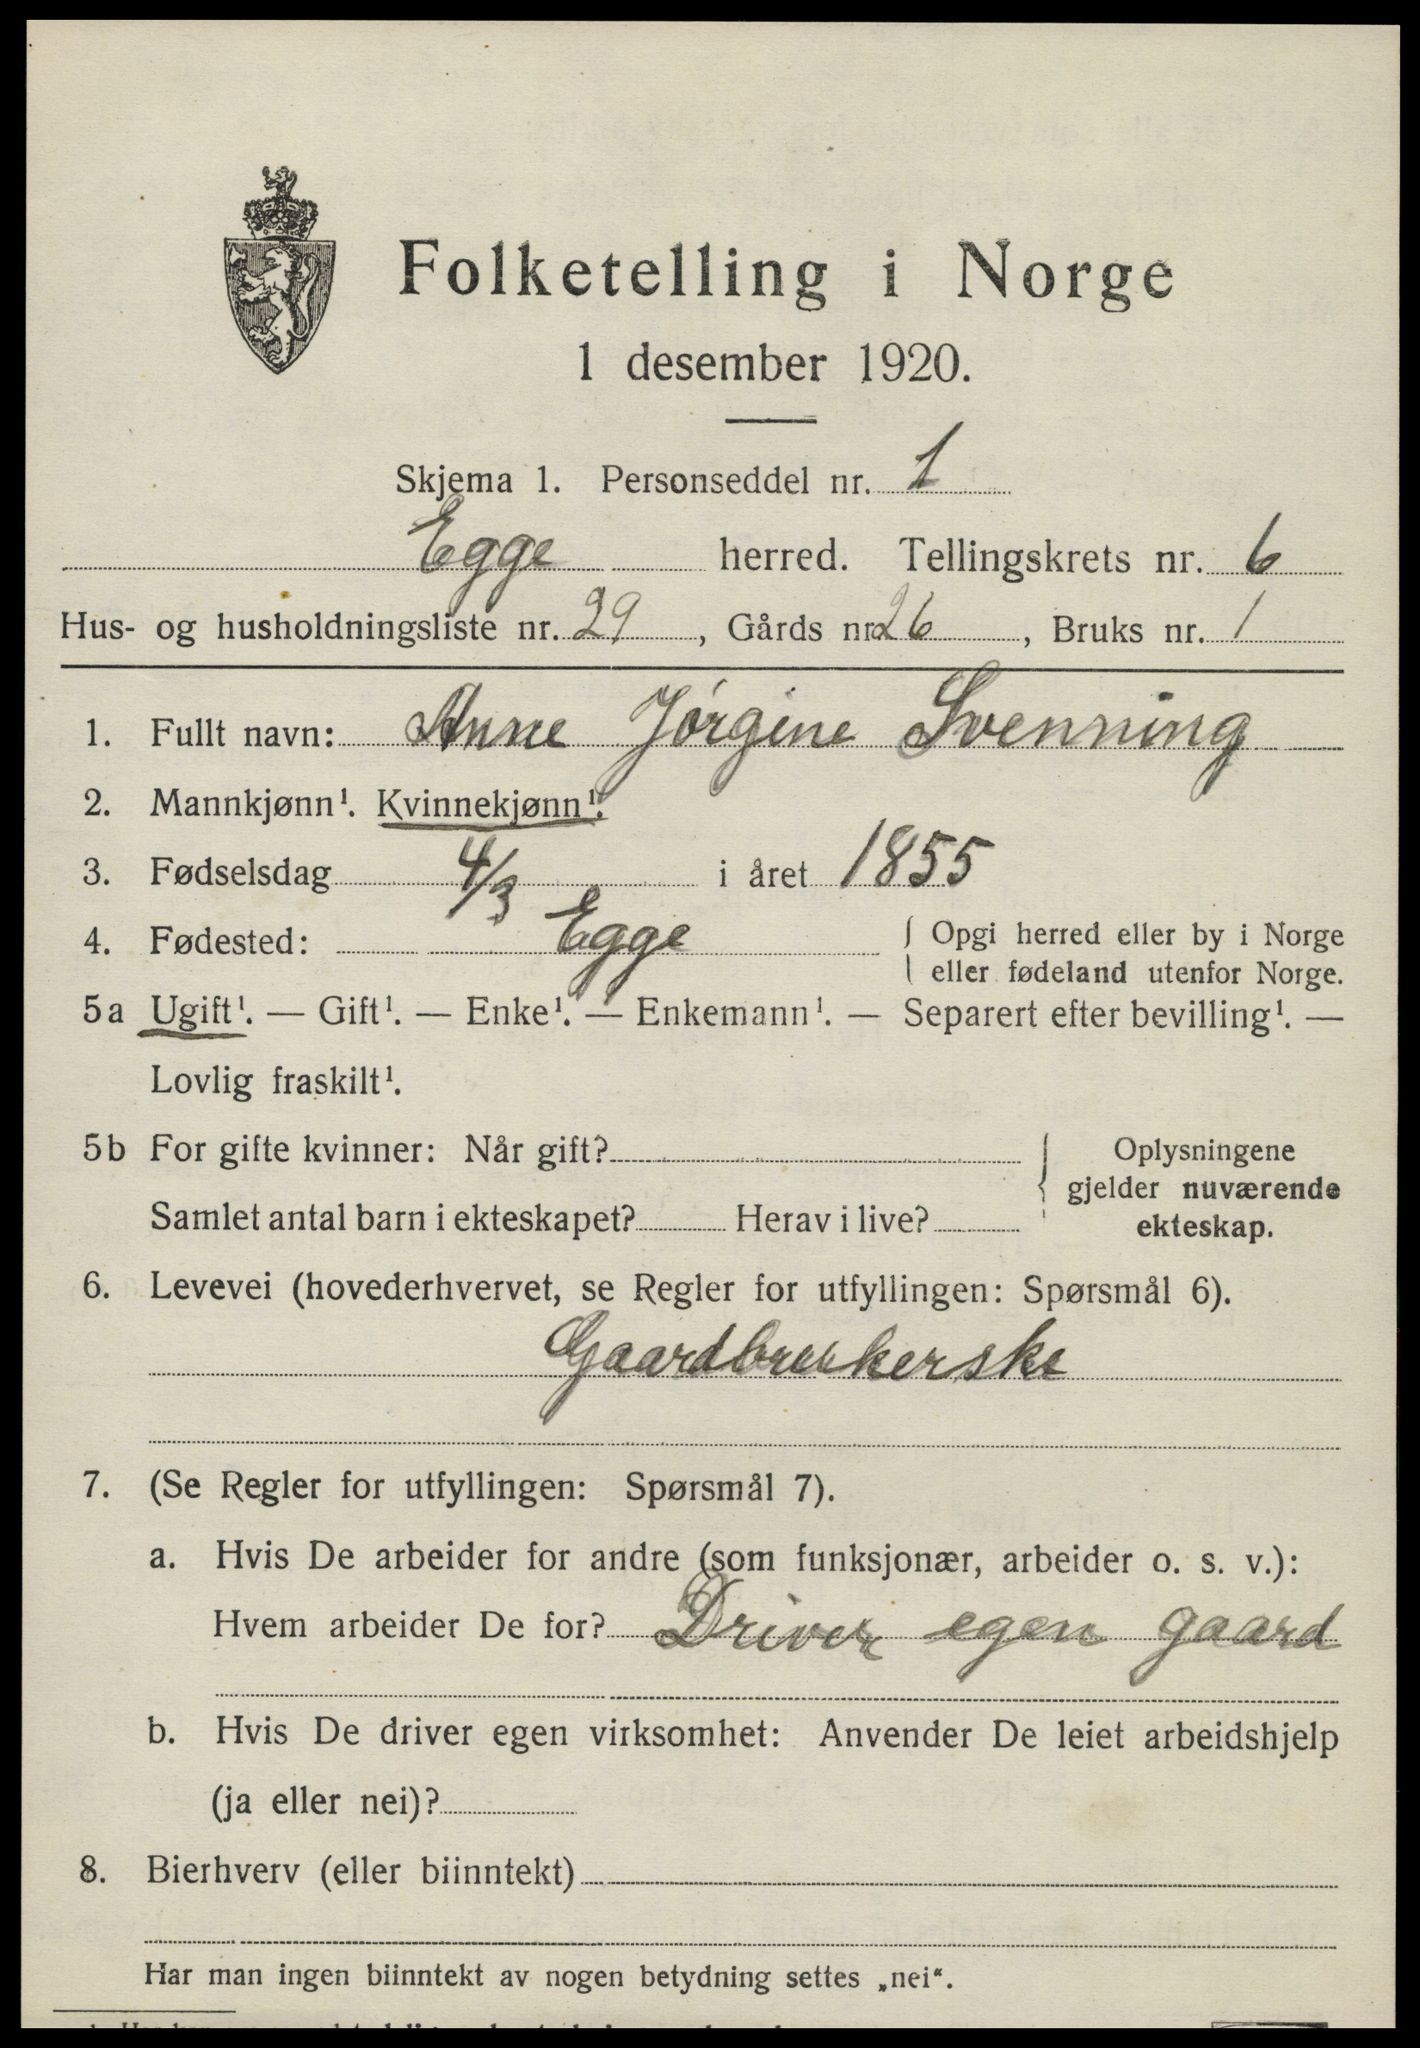 Folketelling i Norge
1 desember 1920.
Skjema 1. Personseddel nr. 1
Egge herred. Tellingskrets nr. 6
Hus- og husholdningsliste nr. 29, Gårds nr. 26, Bruks nr. 1
1. Fullt navn: Anne Jørgine Svenning
2. Mannkjønn¹. Kvinnekjønn¹.
3. Fødselsdag 4/3 i året 1855
4. Fødested: Egge { Opgi herred eller by i Norge
eller fødeland utenfor Norge.
5a Ugift¹. — Gift¹. — Enke¹. — Enkemann¹. — Separert efter bevilling¹. —
Lovlig fraskilt¹.
5b For gifte kvinner: Når gift?
Samlet antal barn i ekteskapet? Herav i live?
Oplysningene
gjelder nuværende
ekteskap.
6. Levevei (hovederhvervet, se Regler for utfyllingen: Spørsmål 6).
Gaardbrukerske
7. (Se Regler for utfyllingen: Spørsmål 7).
a. Hvis De arbeider for andre (som funksjonær, arbeider o. s. v.):
Hvem arbeider De for? Driver egen gaard
b. Hvis De driver egen virksomhet: Anvender De leiet arbeidshjelp
(ja eller nei)?
8. Bierhverv (eller biinntekt)
Har man ingen biinntekt av nogen betydning settes „nei“.